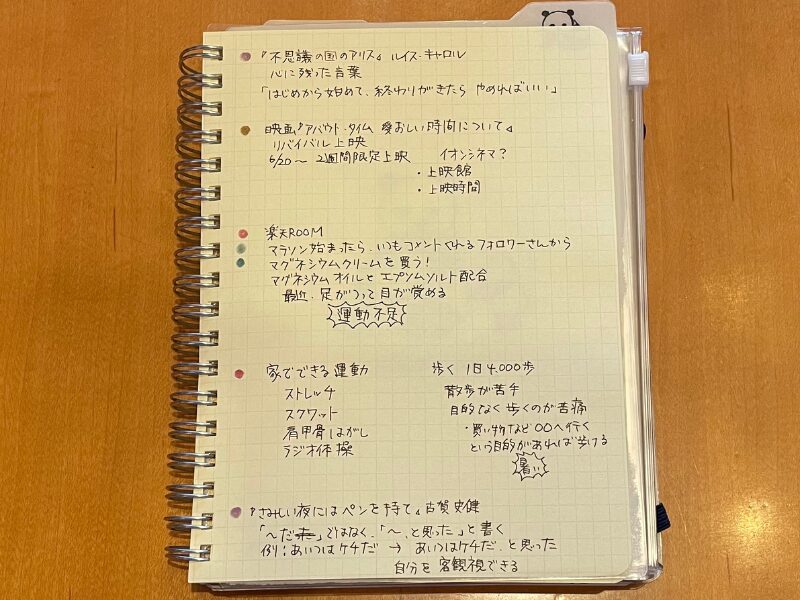 『不思議の国のアリス』 ルイス・キャロル
心に残った言葉
「はじめから始めて、終わりがきたら やめればいい」
映画『アバウト・タイム 愛おしい時間について』
リバイバル上映
6/20〜 2週間限定上映 イオンシネマ？
・上映館
・上映時間
楽天ROOM
マラソン始まったら、いつもコメントくれるフォロワーさんから
マグネシウムクリームを買う！
マグネシウムオイルと エプソムソルト配合
最近、足がつって目が覚める
運動不足
家でできる運動
ストレッチ
スクワット
肩甲骨はがし
ラジオ体操
歩く 1日4,000歩
散歩が苦手
目的なく歩くのが苦痛
・買い物など 〇〇へ行く
という目的があれば歩ける
暑い
『さみしい夜にはペンを持て』古賀史健
「〜だ」ではなく、「〜、と思った」と書く
例：あいつはケチだ → あいつはケチだ、と思った
自分を 客観視できる